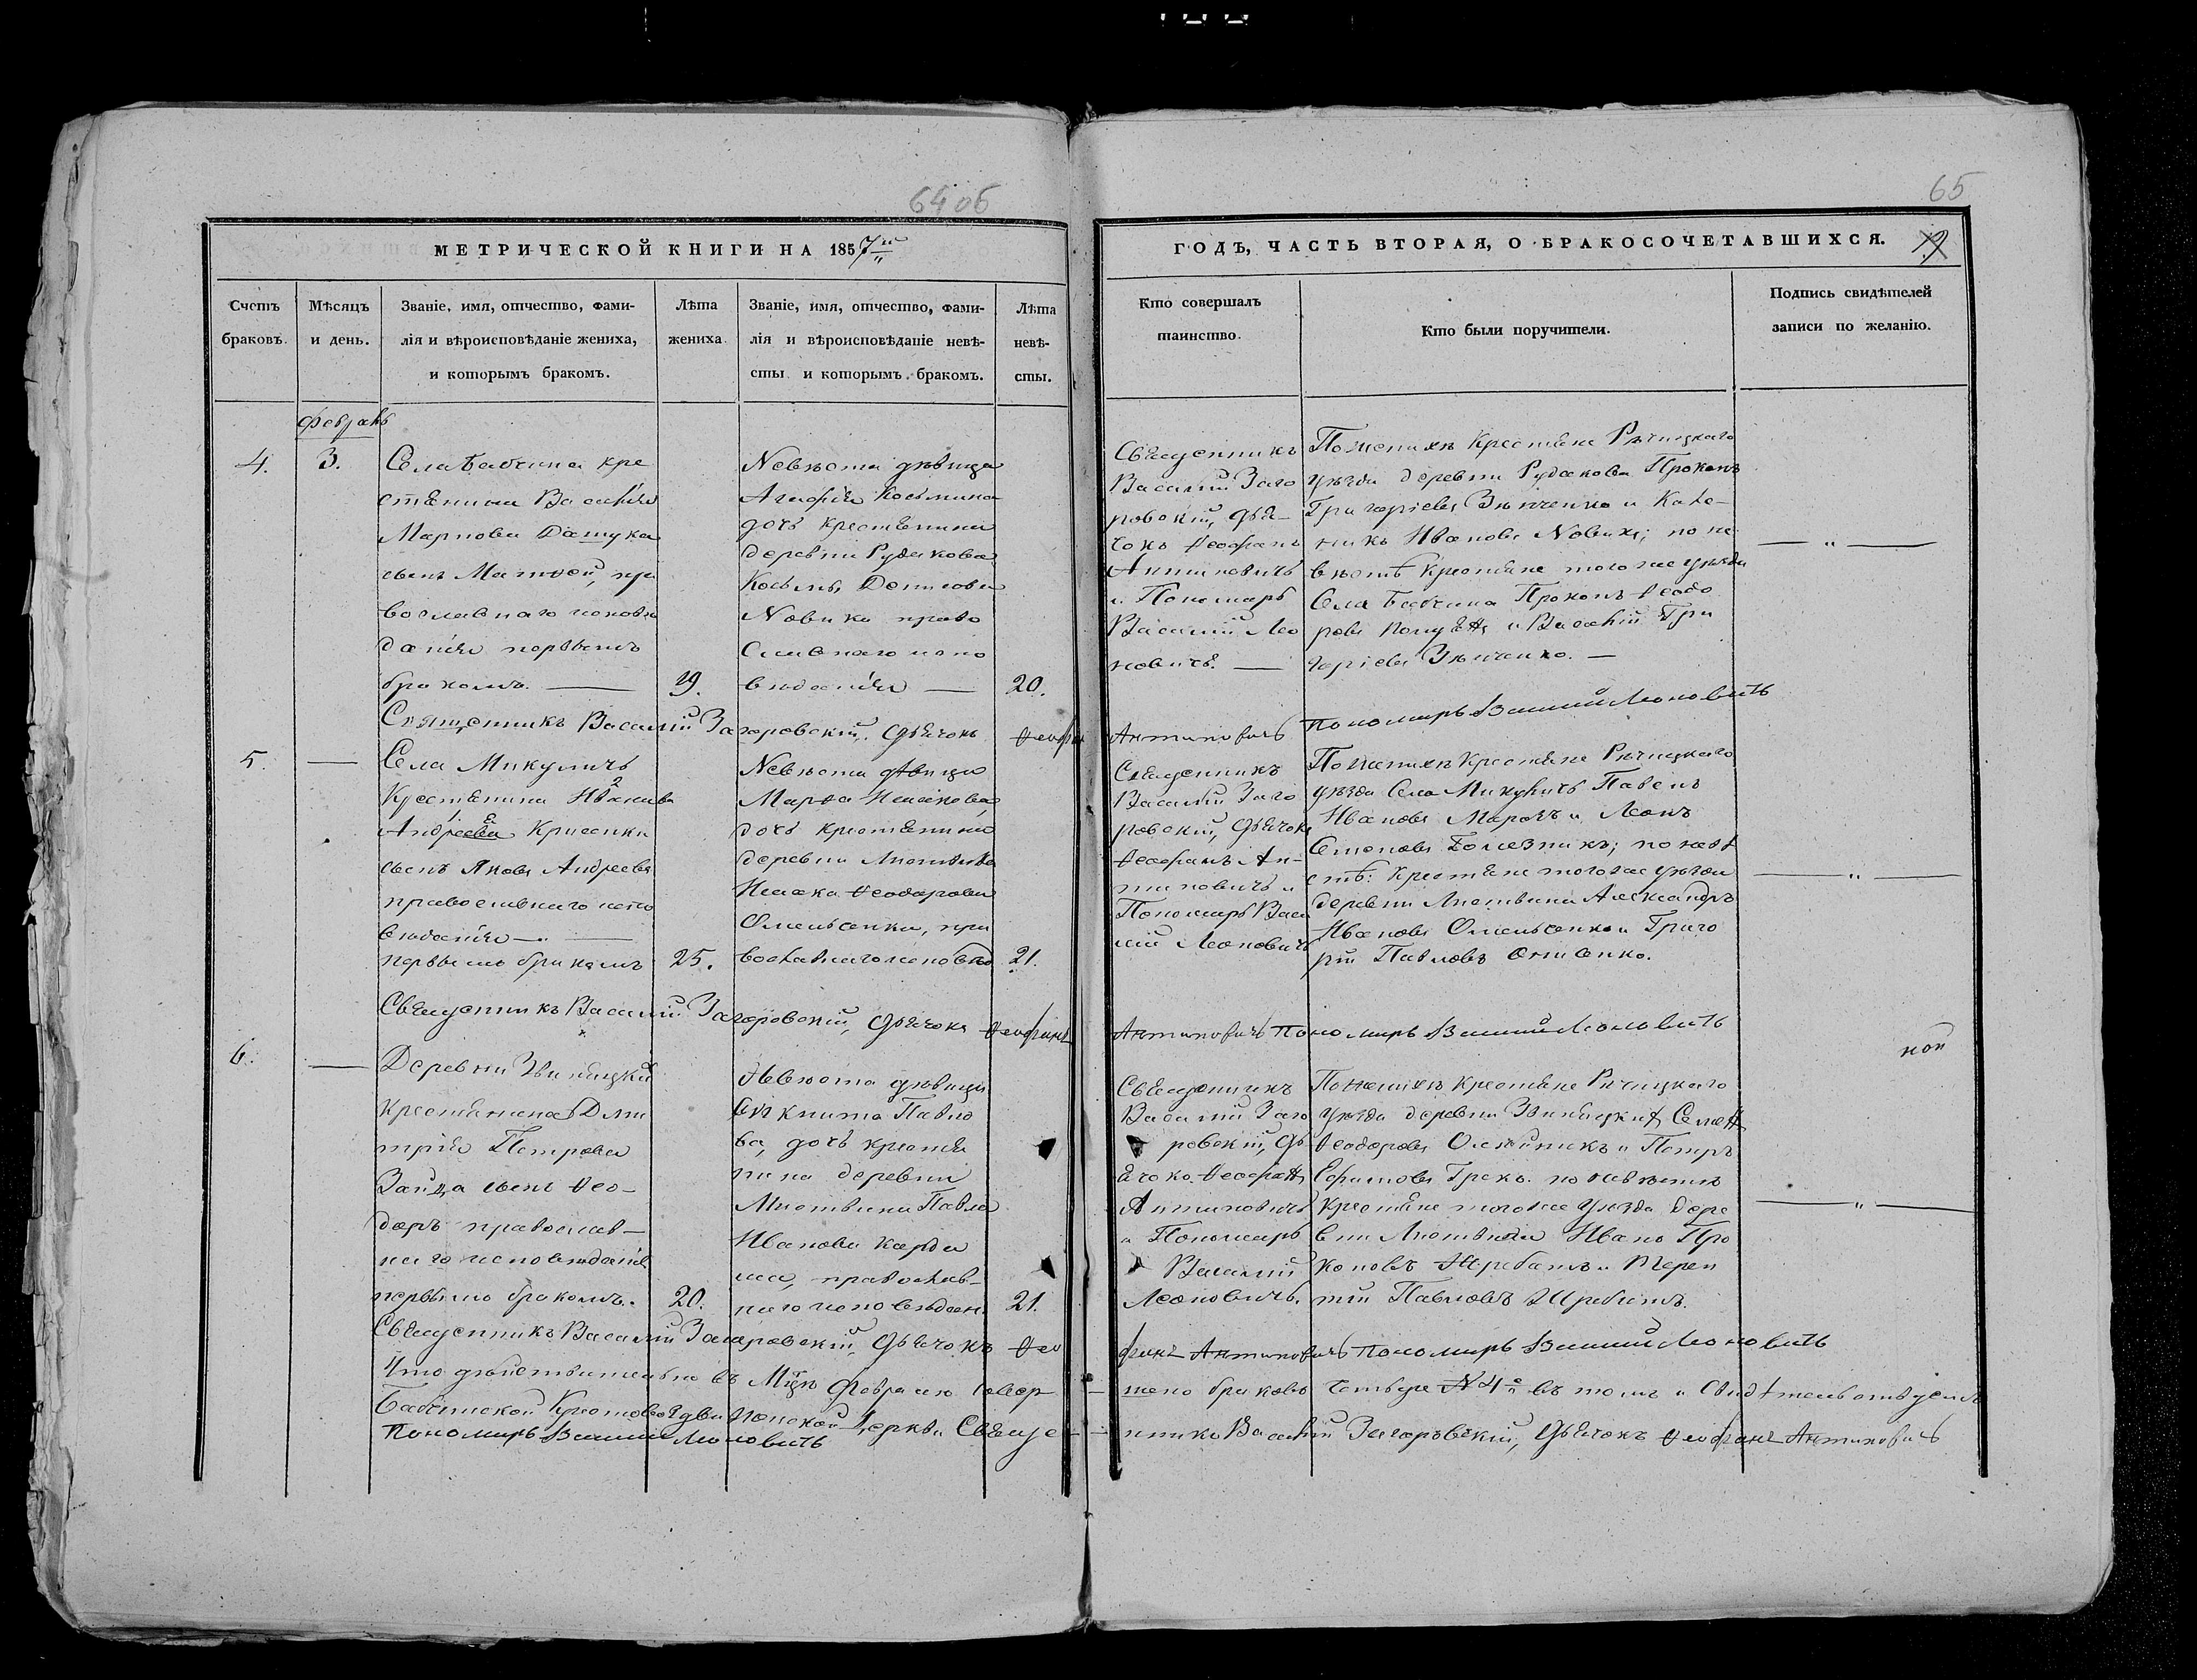 64 об
65
МЕТРИЧЕСКОЙ КНИГИ НА 1857й
ГОДЪ, ЧАСТЬ ВТОРАЯ, О БРАКОСОЧЕТАВШИХСЯ.
Счетъ браковъ.
Мѣсяцъ и день.
Званіе, имя, отчество, фами-
лія и вѣроисповѣданіе жениха,
и которымъ бракомъ.
Лѣта жениха
Званіе, имя, отчество, фами-
лія и вѣроисповѣданіе невѣ-
сты и которымъ бракомъ.
Лѣта
невѣ-
сты.
Кто совершалъ
таинство.
Кто были поручители.
Подпись свидѣтелей
записи по желанію.
Февраль
4.
3.
Села Бабчина кре
стьянина Василія
Маркова Дашука
сынъ Матвей, пра
вославнаго исповѣ
данія первымъ
бракомъ.
19.
Невѣста дѣвица
Агафія Косьмина
дочь крестьянина
деревни Рудакова
Косьмы Денисова
Новика право
славнаго испо
вѣданія
20.
Священникъ
Василий Заго
ровский, Дья-
чокъ Феофанъ
Антиповичъ
и Пономарь
Василий Лео
новичъ.
По женихѣ Крестьяне Рѣчицкаго
уѣзда деревни Рудакова Прокопъ
Григоріевъ Зѣнченко и Кале-
никъ Ивановъ Новикъ; по не
вѣстѣ Крестьяне тогоже уѣзда
Села Бабчина Прокопъ Феодо
ровъ и Василий Гри
горіевъ Зѣнченко.
Священникъ Василий Загоровский, Дьячокъ Феофанъ Антиповичь Пономарь Василий Леоновичь
5.
Села Микуличъ
Крестьянина Ивана
Андреева
сынъ Яковъ Андреевъ
православнаго испо
вѣданія
первымъ бракомъ
25.
Невѣста дѣвица
Марфа Исакова,
дочь крестьянина
деревни
Исака Феодорова
Омельченка, пра
вославнаго исповѣд
21.
Священникъ
Василий Заго
ровский, Дьячокъ
Феофанъ Ан-
типовичъ и
Пономарь Васи
лий Леоновичъ
По женихѣ Крестьяне Рѣчицкаго
уѣзда Села Микуличъ Павелъ
Ивановъ и Леонъ
по невѣ
стѣ: Крестьяне тогоже уѣзда
деревни Александръ
Ивановъ Омельченко и Григо
рій Павловъ
Священникъ Василий Загоровский, Дьячокъ Феофанъ Антиповичь Пономарь Василий Леоновичь
6.
Деревни
Крестьянина Дми
трія Петрова
Зайца сынъ Фео-
доръ православ-
наго исповѣданія
первымъ бракомъ.
20.
Невѣста дѣвица
Павло
ва, дочь крестья
нина деревни
Павла
Иванова
православ-
наго исповѣдан.
21.
Священникъ
Василий Заго
ровский, Дь
ячокъ Феофанъ
Антиповичъ
и Пономарь
Василий
Леоновичъ.
По женихѣ Крестьяне Рѣчицкаго
уѣзда деревни
Феодоровъ Олейникъ и Петръ
Ефимовъ Грекъ. по невѣстѣ
Крестьяне тогоже уѣзда дере
вни Иванъ Про
коповъ и Терен
тий Павловъ
Священникъ Василий Загоровский, Дьячокъ Феофанъ Антиповичь Пономарь Василий Леоновичь
Что дѣйствительно въ Мцѣ Февралѣ совершено браковъ четыре № 4 въ томъ и свидѣтельствуемъ
Бабчинской Крестовоздвиженской Церкви Священникъ Василий Загоровский, Дьячокъ Феофанъ Антиповичь
Пономарь Василий Леоновичь